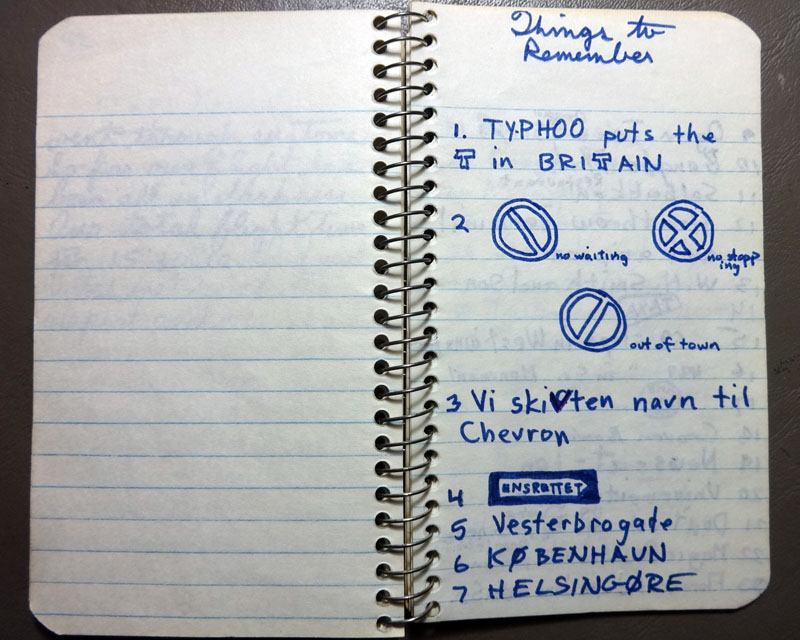 Things to
Remember
1. TYPHOO puts the
T in BRITAIN
2
no waiting
no stopp
ing
out of town
3 Vi skivten navn til
Chevron
4 ENSRETTET
5 Vesterbrogade
6 KØBENHAUN
7 HELSINGØRE